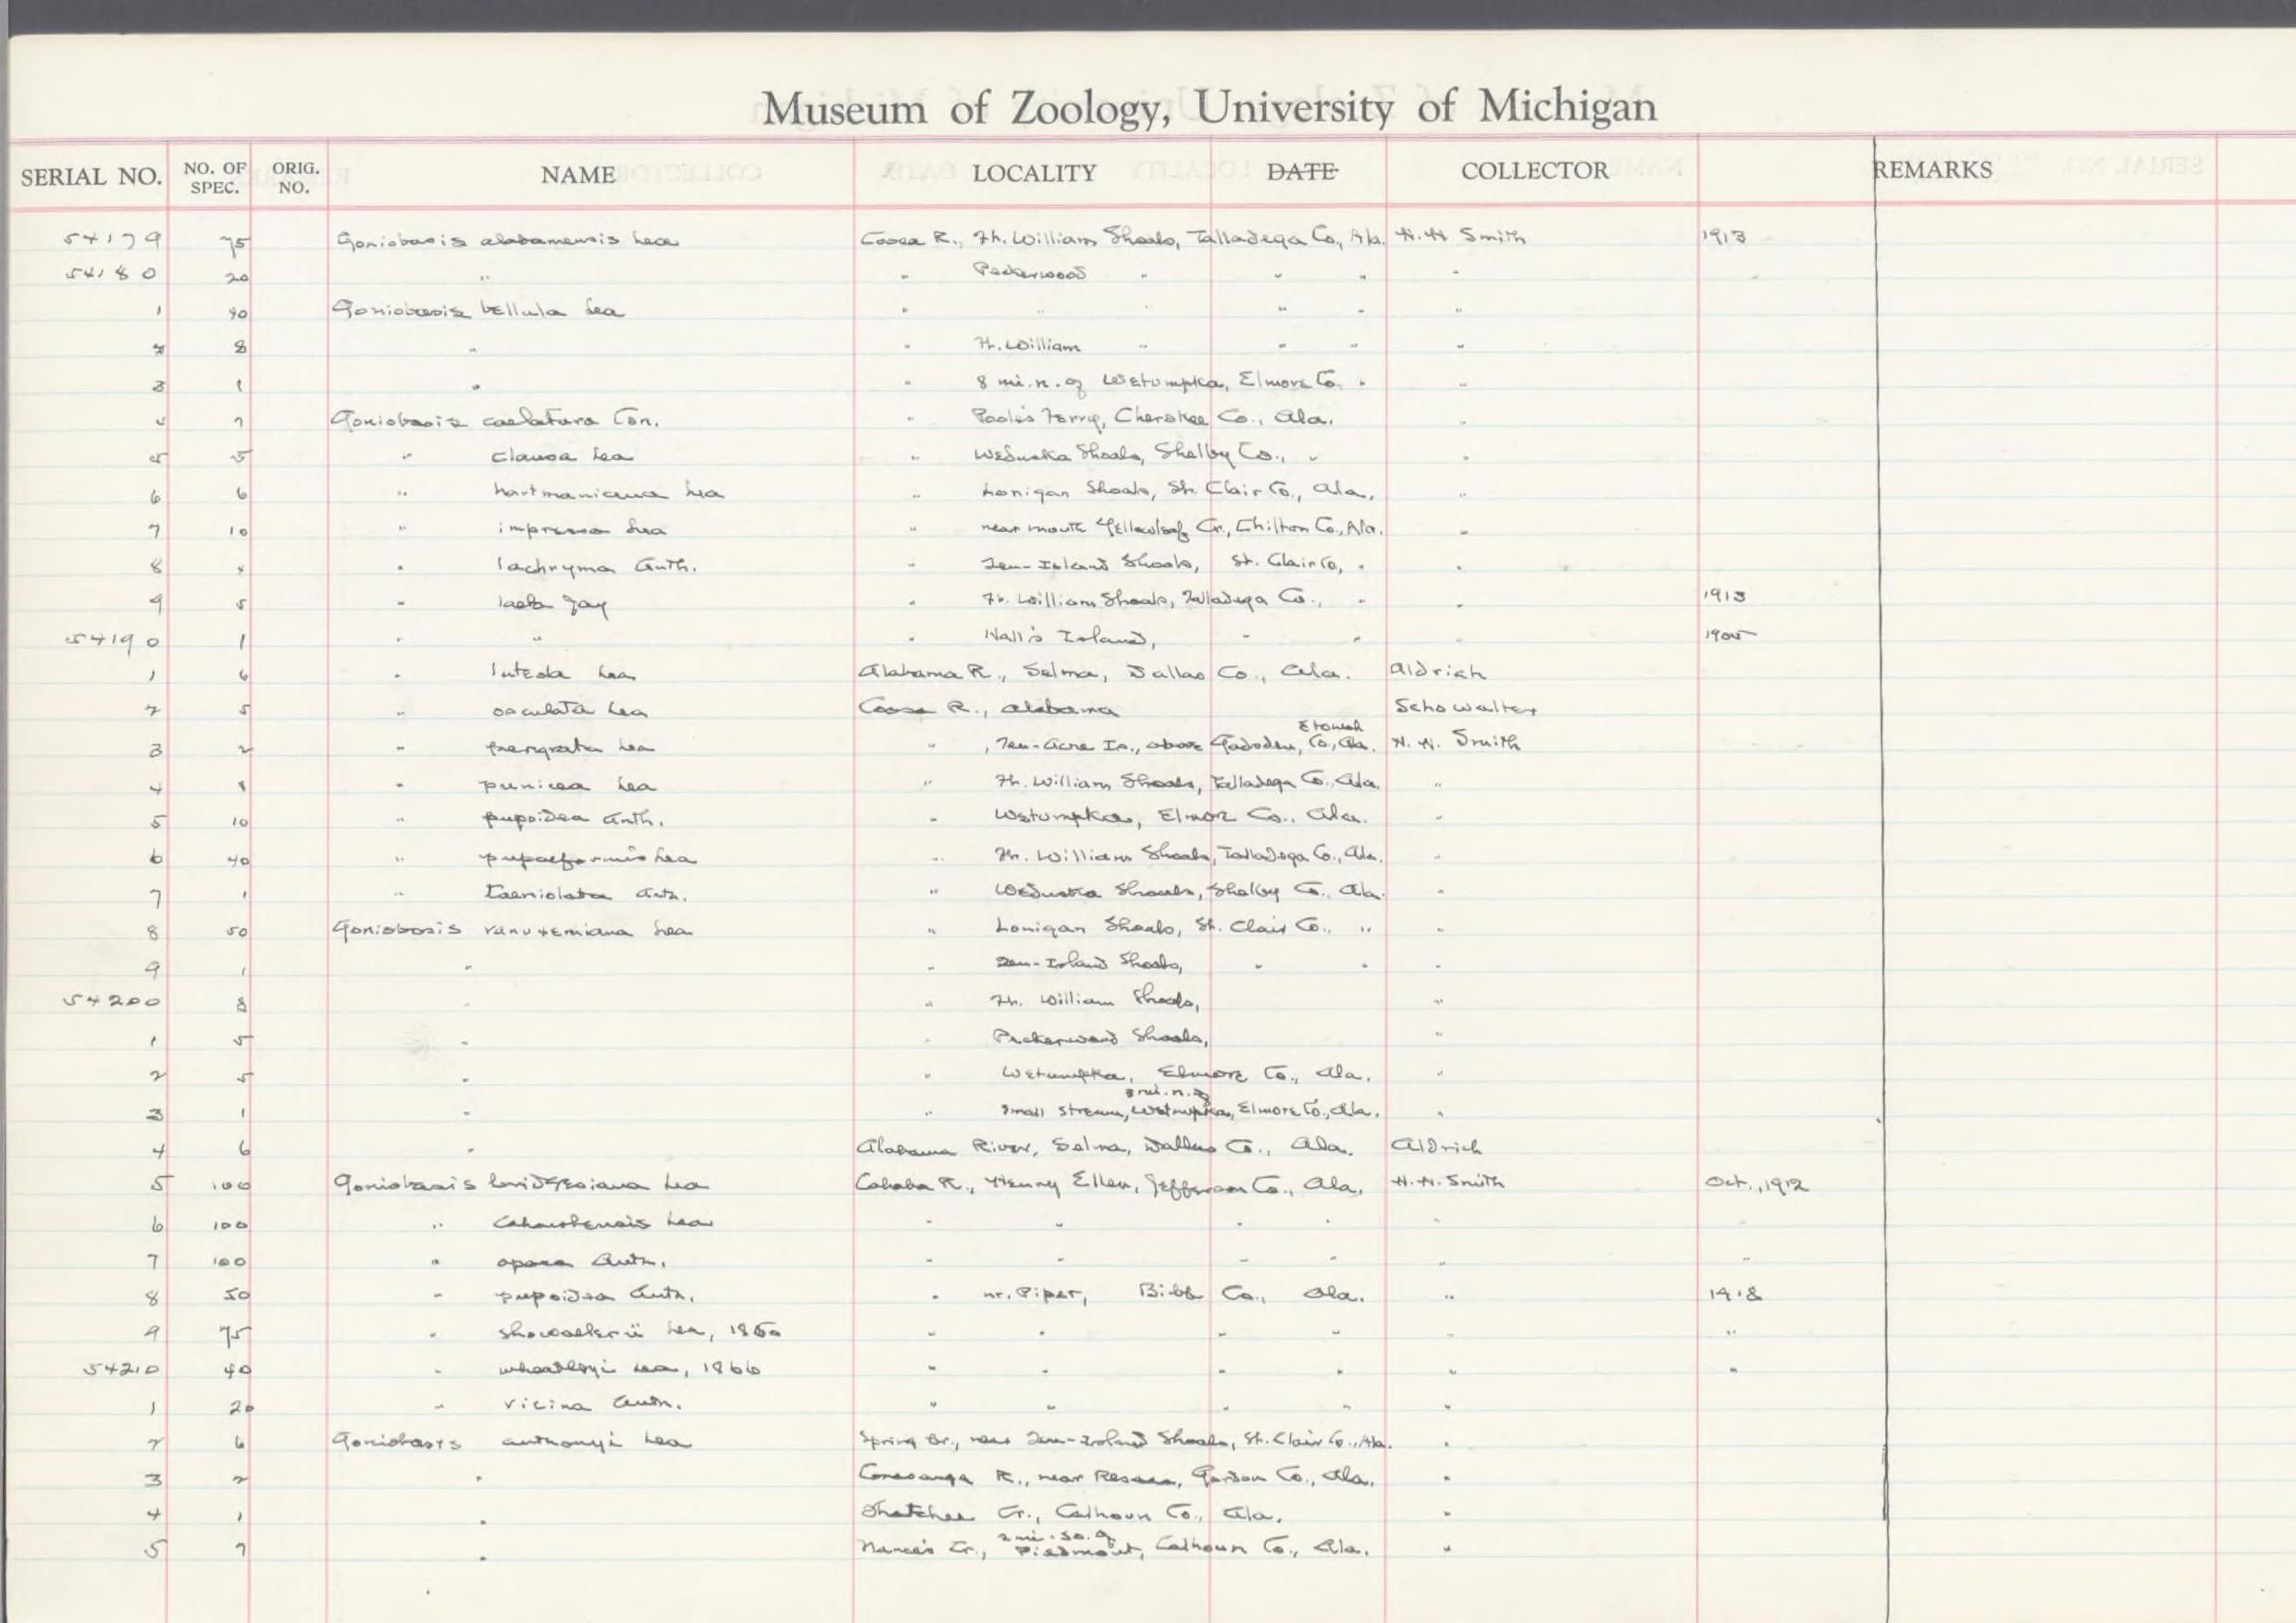 Museum of Zoology, University of Michigan
SERIAL NO. NO. OF SPEC. ORIG. NO. NAME LOCALITY DATE COLLECTOR REMARKS
54179 75 Goniobasis alabamensis Lea Coosa R., Ft. William Shoals, Talladega Co., Ala. H. H. Smith 1913
54180 20 " " Peckerwood " " " "
1 40 Goniobasis bellula Lea " " " " " "
2 8 " " Ft. William " " " "
3 1 " " 8 mi. n. of Wetumpka, Elmore Co. " "
4 7 Goniobasis caelatura Con. " Poole's Ferry, Cherokee Co., Ala. "
5 5 " clausa Lea " Weduska Shoals, Shelby Co., " "
6 6 " hartmaniana Lea " Lonigan Shoals, St. Clair Co., Ala. "
7 10 " impressa Lea " near mouth Yellowleaf Cr., Chilton Co., Ala. "
8 " lachryma Anth. " Ten-Island Shoals, St. Clair Co, " "
9 5 " laeta Jay " Ft. William Shoals, Talladega Co., " " 1913
54190 1 " " " Hall's Island, " " " 1905
1 6 " luteola Lea Alabama R., Selma, Dallas Co., Ala. Aldrich
2 5 " osculata Lea Coosa R., Alabama Schowalter
3 2 " pergrata Lea " , Ten-Acre Is., above Gadsden, Etowah Co, Ala. H. H. Smith
4 8 " punicea Lea " Ft. William Shoals, Talladega Co., Ala. "
5 10 " pupoidea Anth. " Wetumpka, Elmore Co., Ala. "
6 40 " pupaeformis Lea " Ft. William Shoals, Talladega Co., Ala. "
7 1 " taeniolata Anth. " Weduska Shoals, Shelby Co., Ala. "
8 50 Goniobasis vanuxemiana Lea " Lonigan Shoals, St. Clair Co., " "
9 1 " " Ten-Island Shoals, " " "
54200 8 " " Ft. William Shoals, "
1 5 " " Peckerwood Shoals, "
2 5 " " Wetumpka, Elmore Co., Ala. "
3 1 " " Small stream, 8 mi. n. of Wetumpka, Elmore Co., Ala. "
4 6 " Alabama River, Selma, Dallas Co., Ala. Aldrich
5 100 Goniobasis Lea Cahaba R., Henry Ellen, Jefferson Co., Ala. H. H. Smith Oct., 1912
6 100 " cahawbensis Lea " " " " " "
7 100 " opaca Anth. " " " " " "
8 50 " pupoidea Anth. " nr. Piper, Bibb Co., Ala. " 1918
9 75 " showalterii Lea, 1860 " " " " " "
54210 40 " wheatleyi Lea, 1866 " " " " " "
1 20 " vicina Anth. " " " " "
2 6 Goniobasis anthonyi Lea Spring Br., near Ten-Island Shoals, St. Clair Co., Ala. "
3 2 " Conasauga R., near Resaca, Gordon Co., Ala. "
4 1 " Ohatchee Cr., Calhoun Co., Ala. "
5 7 " Nance's Cr., 2 mi. so. of Piedmont, Calhoun Co., Ala. "